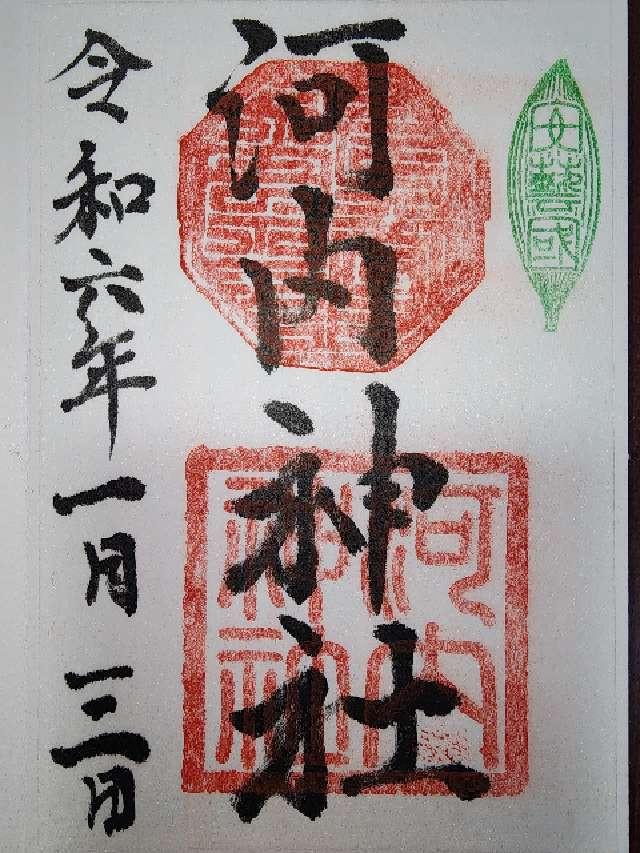 安藝國
河内神社
河内
神社
令和六年一月三日